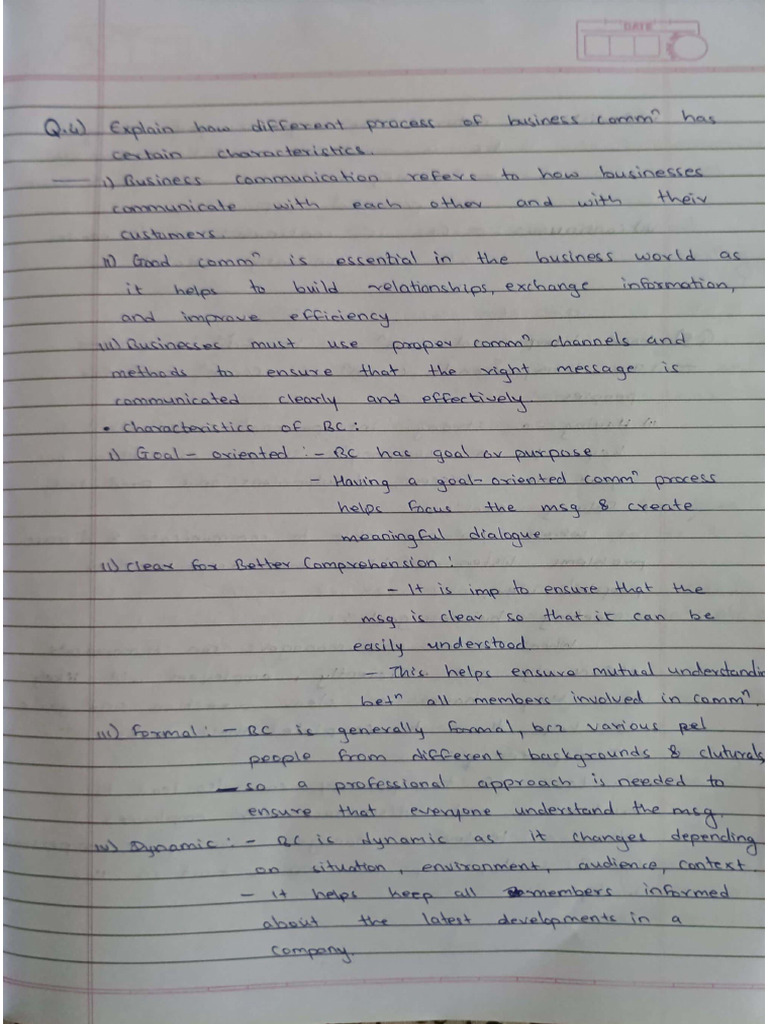 DATE
Q.4) Explain how different process of business commⁿ has
certain characteristics.
i) Business communication refers to how businesses
communicate with each other and with their
customers.
ii) Good commⁿ is essential in the business world as
it helps to build relationships, exchange information,
and improve efficiency
iii) Businesses must use proper commⁿ channels and
methods to ensure that the right message is
communicated clearly and effectively.
• Characteristics of BC:
i) Goal-oriented :- BC has goal or purpose
- Having a goal-oriented commⁿ process
helps focus the msg & create
meaningful dialogue
ii) Clear for Better Comprehension :
- It is imp to ensure that the
msg is clear so that it can be
easily understood
- This helps ensure mutual understandin
betⁿ all members involved in commⁿ.
iii) Formal: - BC is generally formal, bcz various pel
people from different backgrounds & cluturals,
- so a professional approach is needed to
ensure that everyone understand the msg.
iv) Dynamic: - BC is dynamic as it changes depending
on situation, environment, audience, context.
- It helps keep all members informed
about the latest developments in a
company.